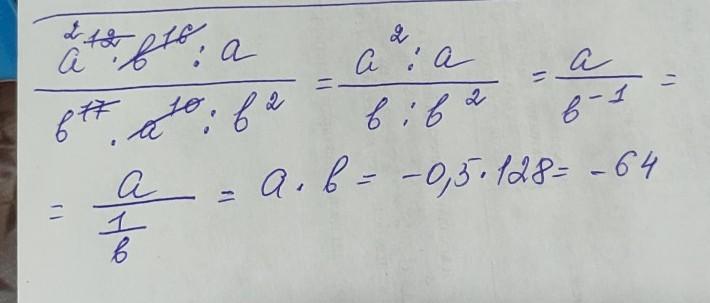 a^2 ^12 · b^16 : a / b^17 · a^10 : b^2 = a^2 : a / b : b^2 = a / b^-1 =
= a / 1/b = a · b = -0,5 · 128 = -64